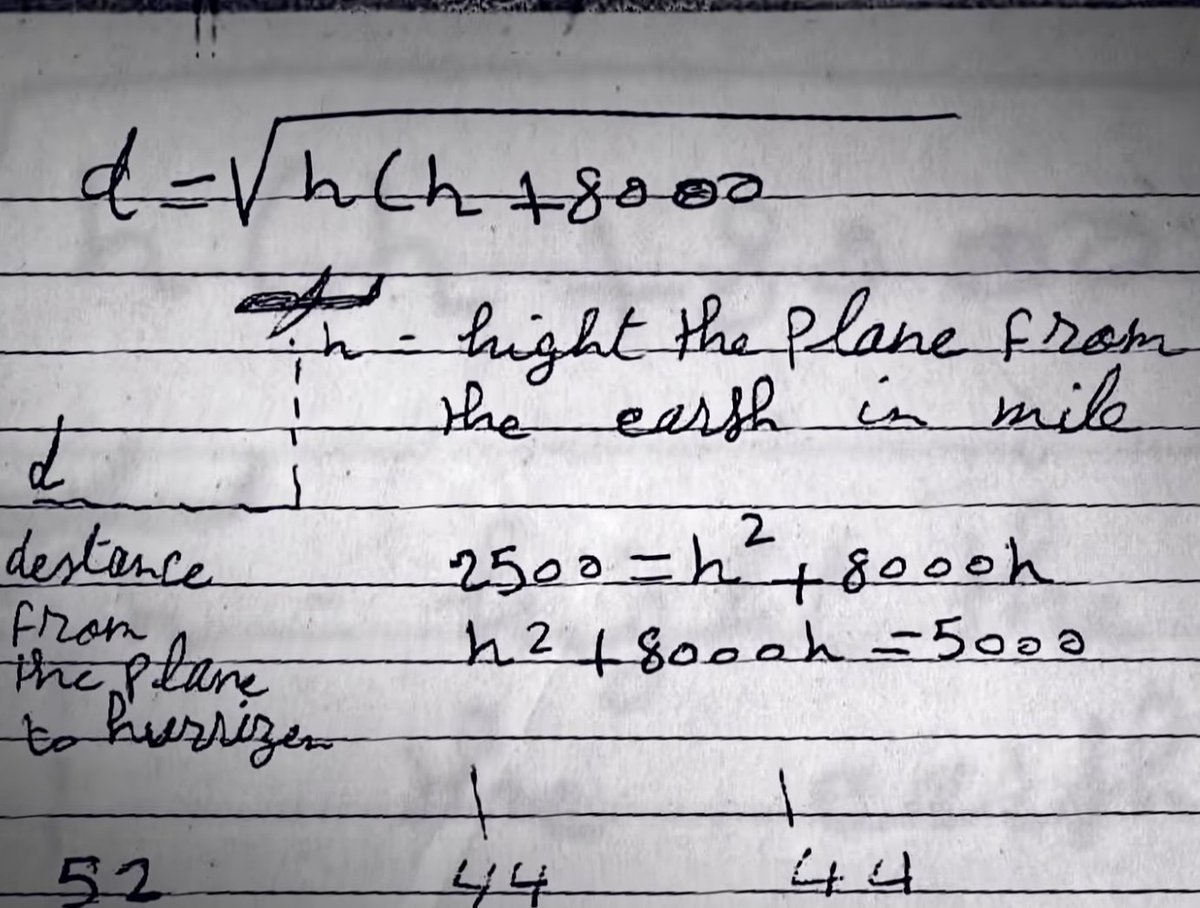 d = √h(h + 8000
h = hight the plane from
the earth in mile
d
destance
from
the plane
to hurrizen
2500 = h² + 8000h
h² + 8000h = 5000
52 44 44